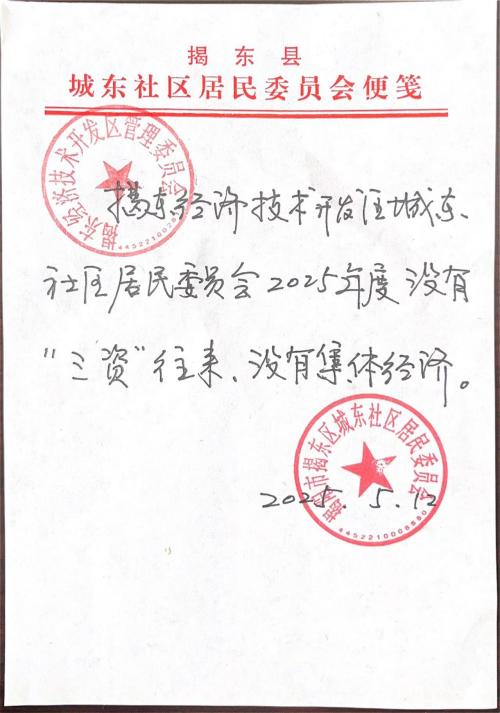 揭东县
城东社区居民委员会便笺
揭东经济技术开发区管理委员会
揭东经济技术开发区城东
社区居民委员会2025年度没有
“三资”往来、没有集体经济。
揭阳市揭东区城东社区居民委员会
2025.5.12
4452210008880